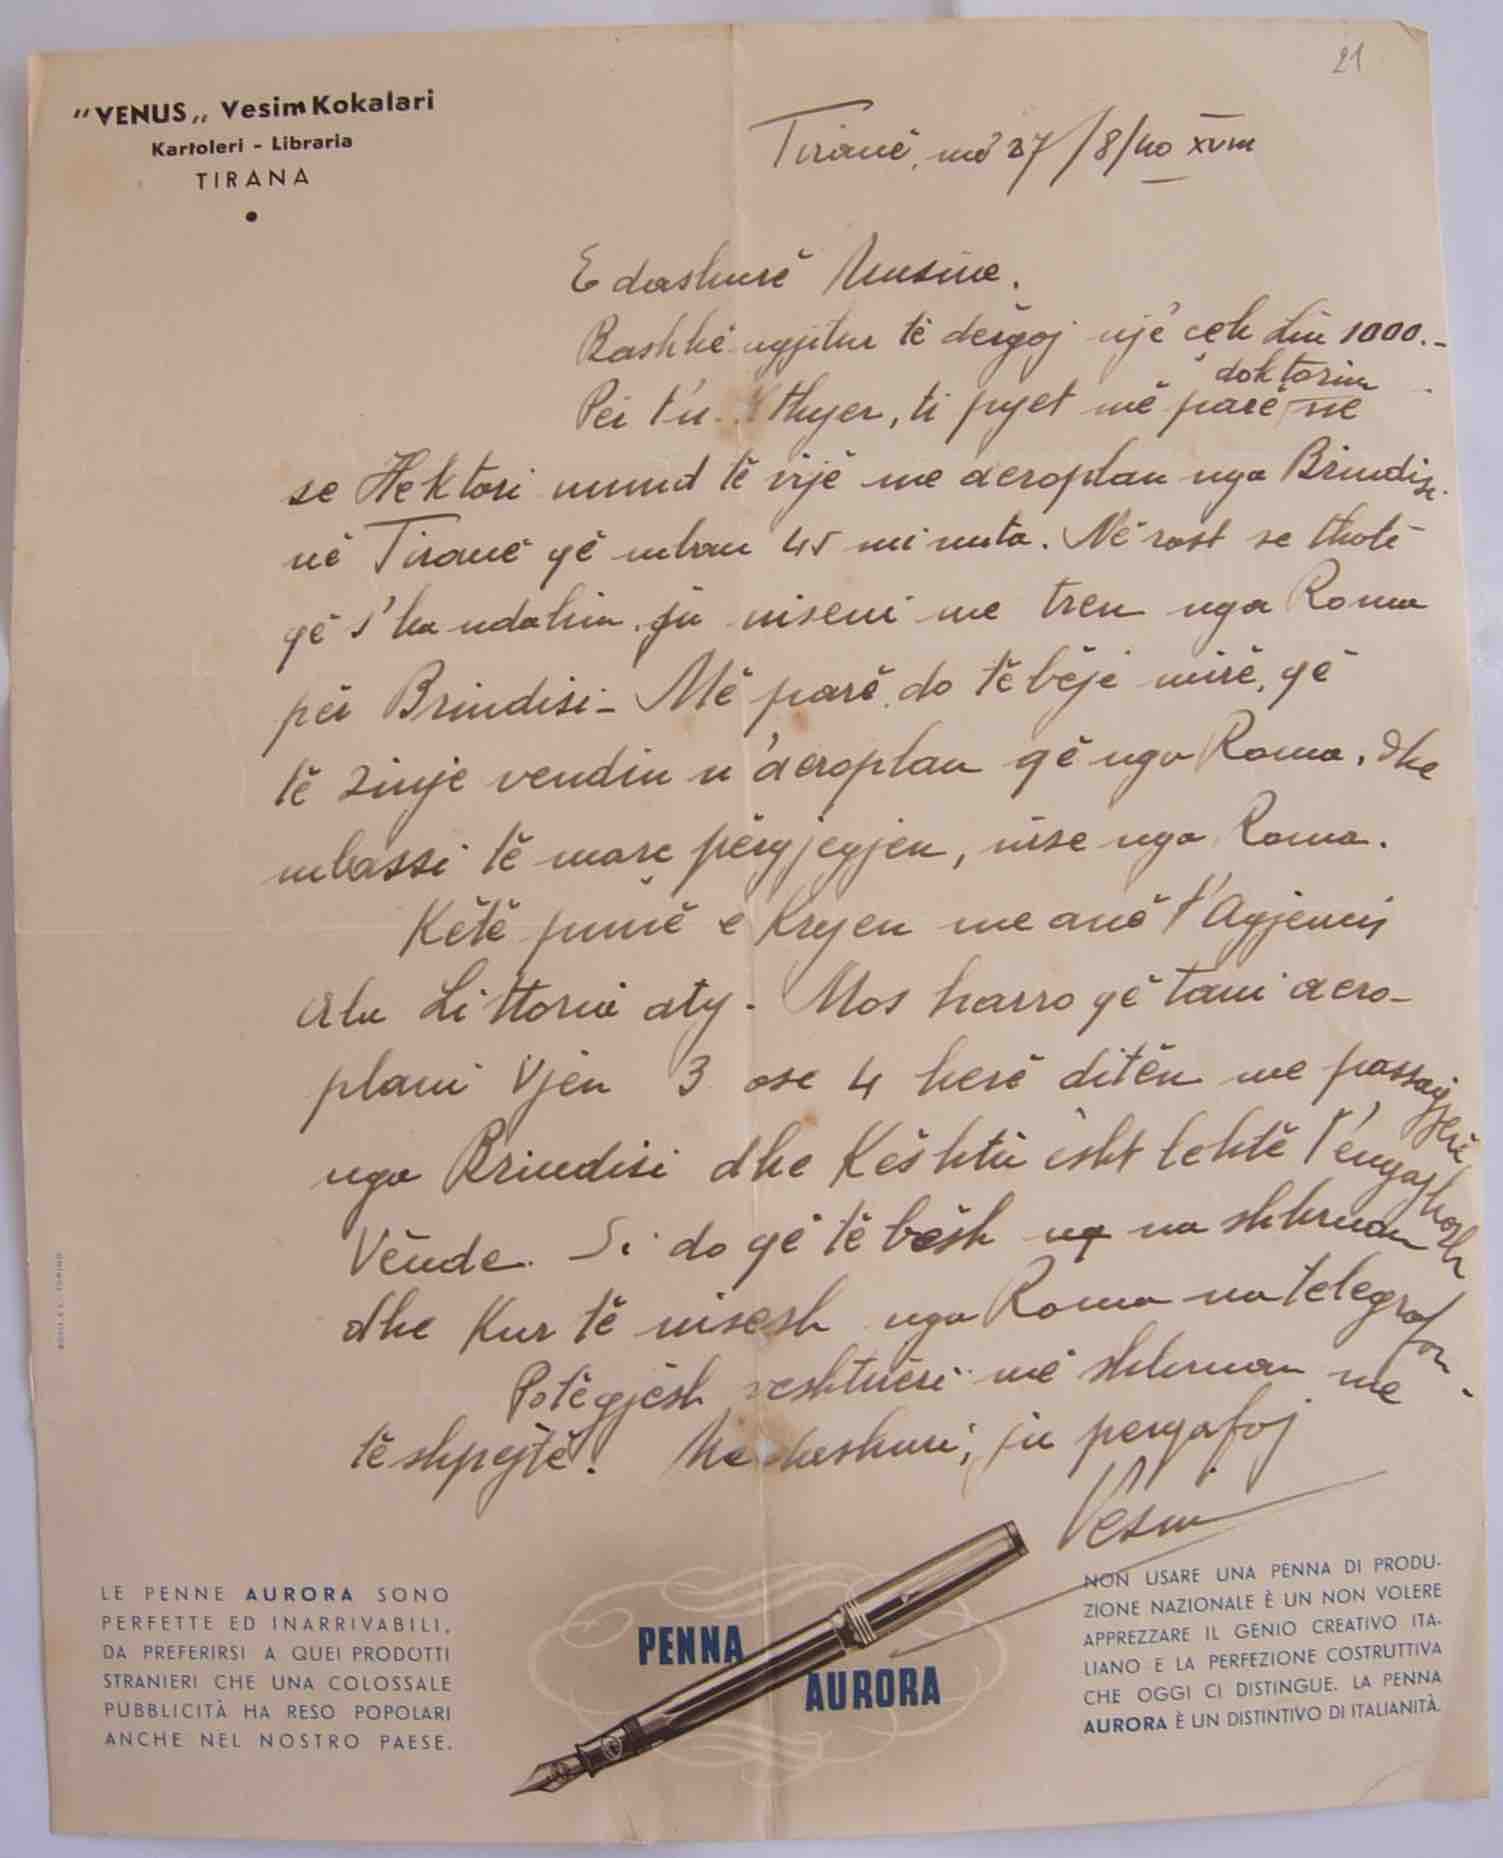 21
"VENUS„ Vesim Kokalari
Kartoleri - Libraria
TIRANA
Tiranë, më 27/8/40 XVIII
E dashurë Musine.
Bashkë ngjitur të dërgoj një çek Lir 1000.-
Për t'u thyer, ti pyet më parë doktorin në
se Hektori mund të vijë me aeroplan nga Brindisi
në Tiranë që mban 45 minuta. Në rast se thotë
që s'ka ndalim, ju niseni me tren nga Roma
për Brindisi - Më parë do të bëje mirë, që
të zinje vendin n'aeroplan që nga Roma, dhe
mbassi të marc përgjegjen, nise nga Roma.
Këtë punë e kryen me anë t'Agjencis
Ala Littoria aty. Mos harro që tani aero-
plani vjen 3 ose 4 herë ditën me passagjerë
nga Brindisi dhe Kështu ësht lehtë t'engazhosh
Vënde. Si do që të bësh na shkruan
dhe Kur të nisesh nga Roma na telegrafon.
Po të gjesh veshturëri më shkruan me
të shpejtë. Me dashuri, ju pergafoj
Vesim
LE PENNE AURORA SONO
PERFETTE ED INARRIVABILI,
DA PREFERIRSI A QUEI PRODOTTI
STRANIERI CHE UNA COLOSSALE
PUBBLICITÀ HA RESO POPOLARI
ANCHE NEL NOSTRO PAESE.
PENNA
AURORA
NON USARE UNA PENNA DI PRODU-
ZIONE NAZIONALE È UN NON VOLERE
APPREZZARE IL GENIO CREATIVO ITA-
LIANO E LA PERFEZIONE COSTRUTTIVA
CHE OGGI CI DISTINGUE. LA PENNA
AURORA È UN DISTINTIVO DI ITALIANITÀ.